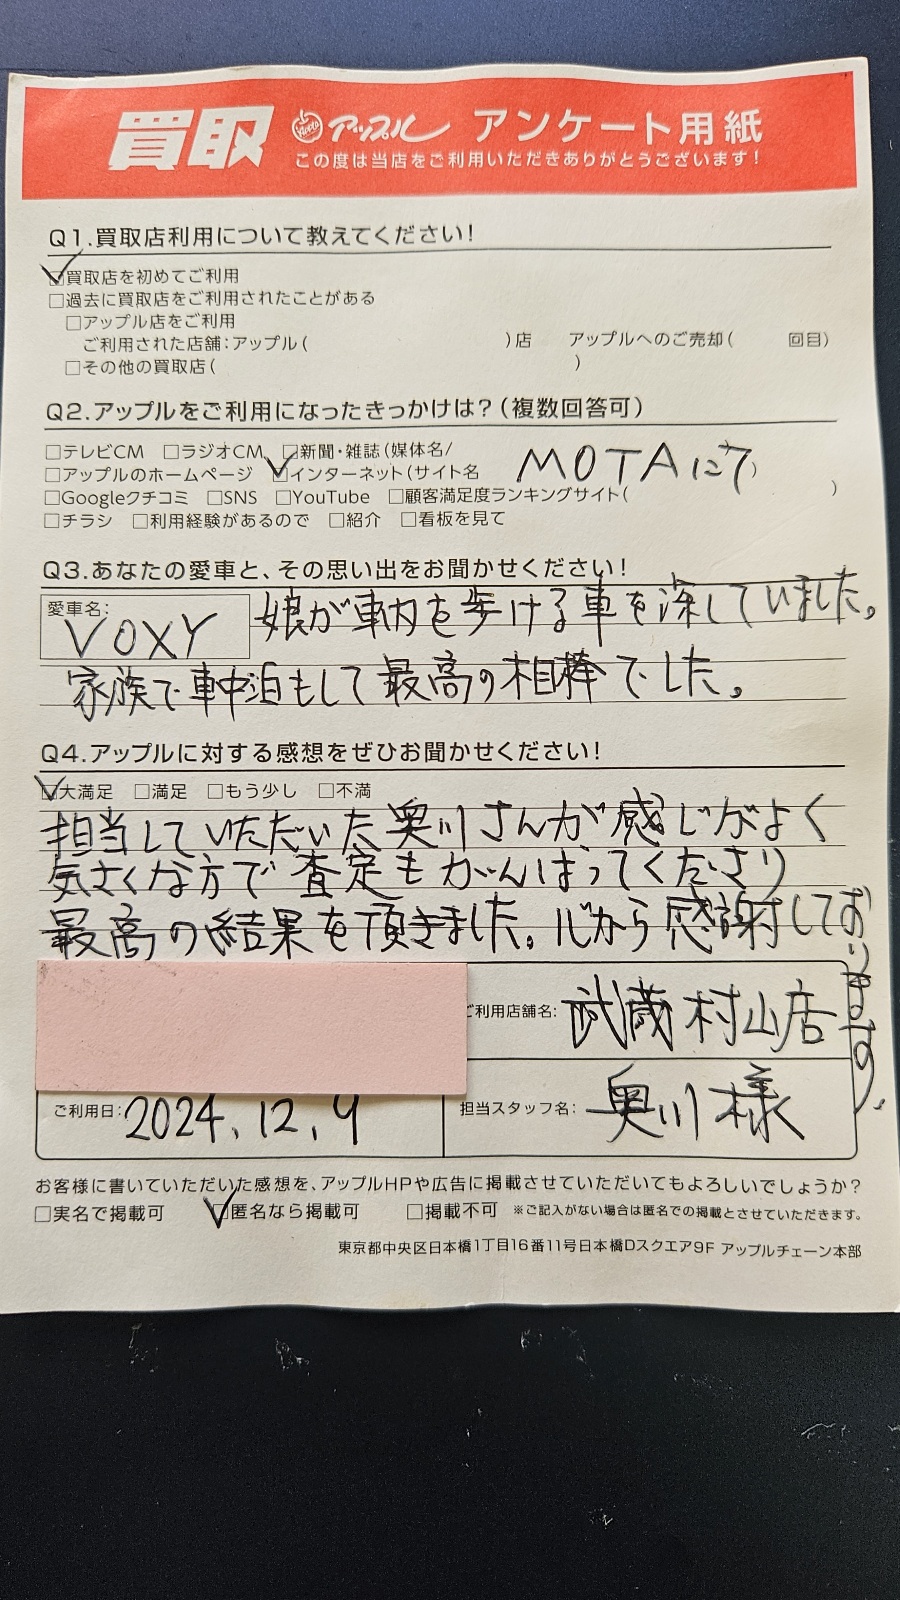 買取 Apple アップル アンケート用紙
この度は当店をご利用いただきありがとうございます!
Q1.買取店利用について教えてください!
☑買取店を初めてご利用
□過去に買取店をご利用されたことがある
□アップル店をご利用
ご利用された店舗:アップル( )店 アップルへのご売却( 回目)
□その他の買取店( )
Q2.アップルをご利用になったきっかけは?(複数回答可)
□テレビCM □ラジオCM □新聞・雑誌(媒体名/
□アップルのホームページ ☑インターネット(サイト名 MOTAにて)
□Googleクチコミ □SNS □YouTube □顧客満足度ランキングサイト( )
□チラシ □利用経験があるので □紹介 □看板を見て
Q3.あなたの愛車と、その思い出をお聞かせください!
愛車名: VOXY 娘が車内を歩ける車を探していました。
家族で車中泊もして最高の相棒でした。
Q4.アップルに対する感想をぜひお聞かせください!
☑大満足 □満足 □もう少し □不満
担当していただいた奥川さんが感じがよく
気さくな方で査定もがんばってくださり
最高の結果を頂きました。心から感謝しております。
ご利用店舗名: 武蔵村山店
ご利用日: 2024.12.9 担当スタッフ名: 奥川様
お客様に書いていただいた感想を、アップルHPや広告に掲載させていただいてもよろしいでしょうか?
□実名で掲載可 ☑匿名なら掲載可 □掲載不可 ※ご記入がない場合は匿名での掲載とさせていただきます。
東京都中央区日本橋1丁目16番11号日本橋Dスクエア9F アップルチェーン本部